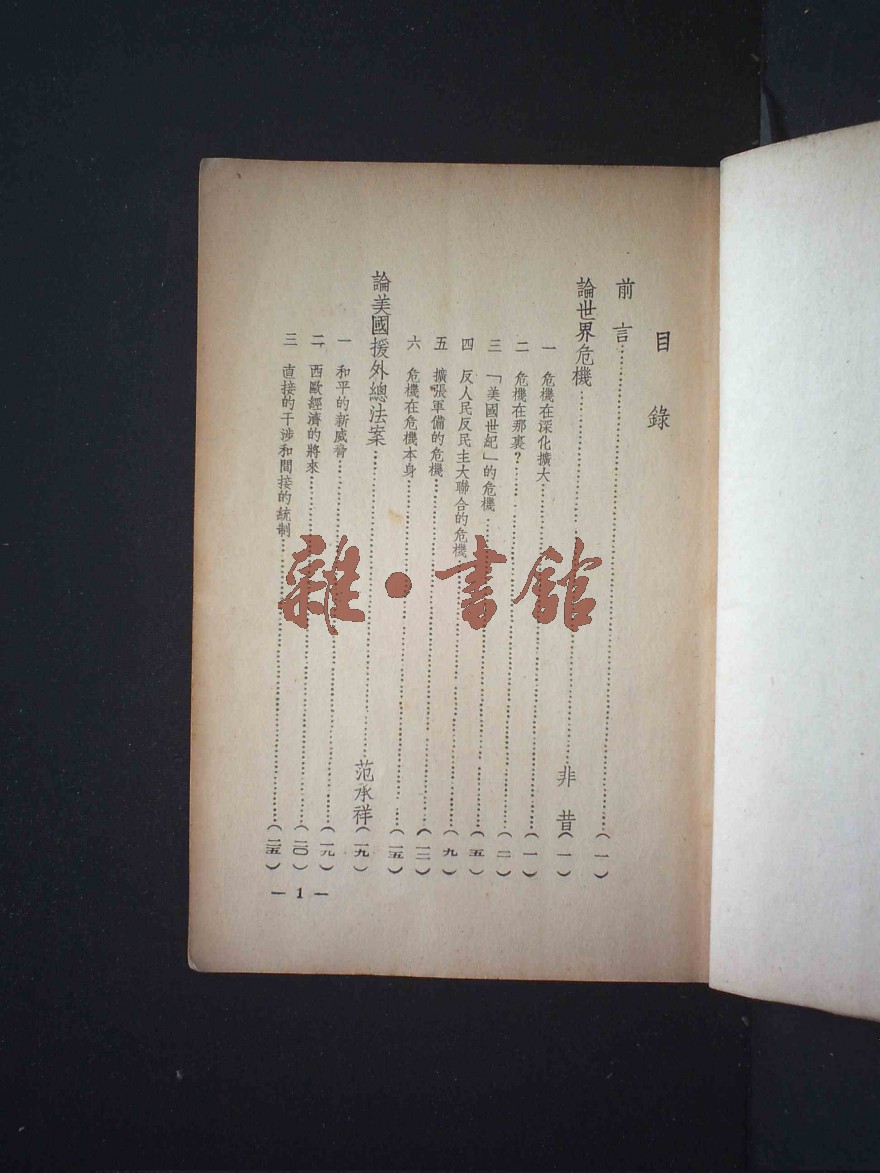 目錄
前言…………(一)
論世界危機…………非昔(一)
一 危機在深化擴大…………(一)
二 危機在那裏？…………(二)
三 「美國世紀」的危機…………(五)
四 反人民反民主大聯合的危機…………(九)
五 擴張軍備的危機…………(一二)
六 危機在危機本身…………(一五)
論美國援外總法案…………范承祥(一九)
一 和平的新威脅…………(一九)
二 西歐經濟的將來…………(二〇)
三 直接的干涉和間接的統制…………(二五)
— 1 —
雜·書館